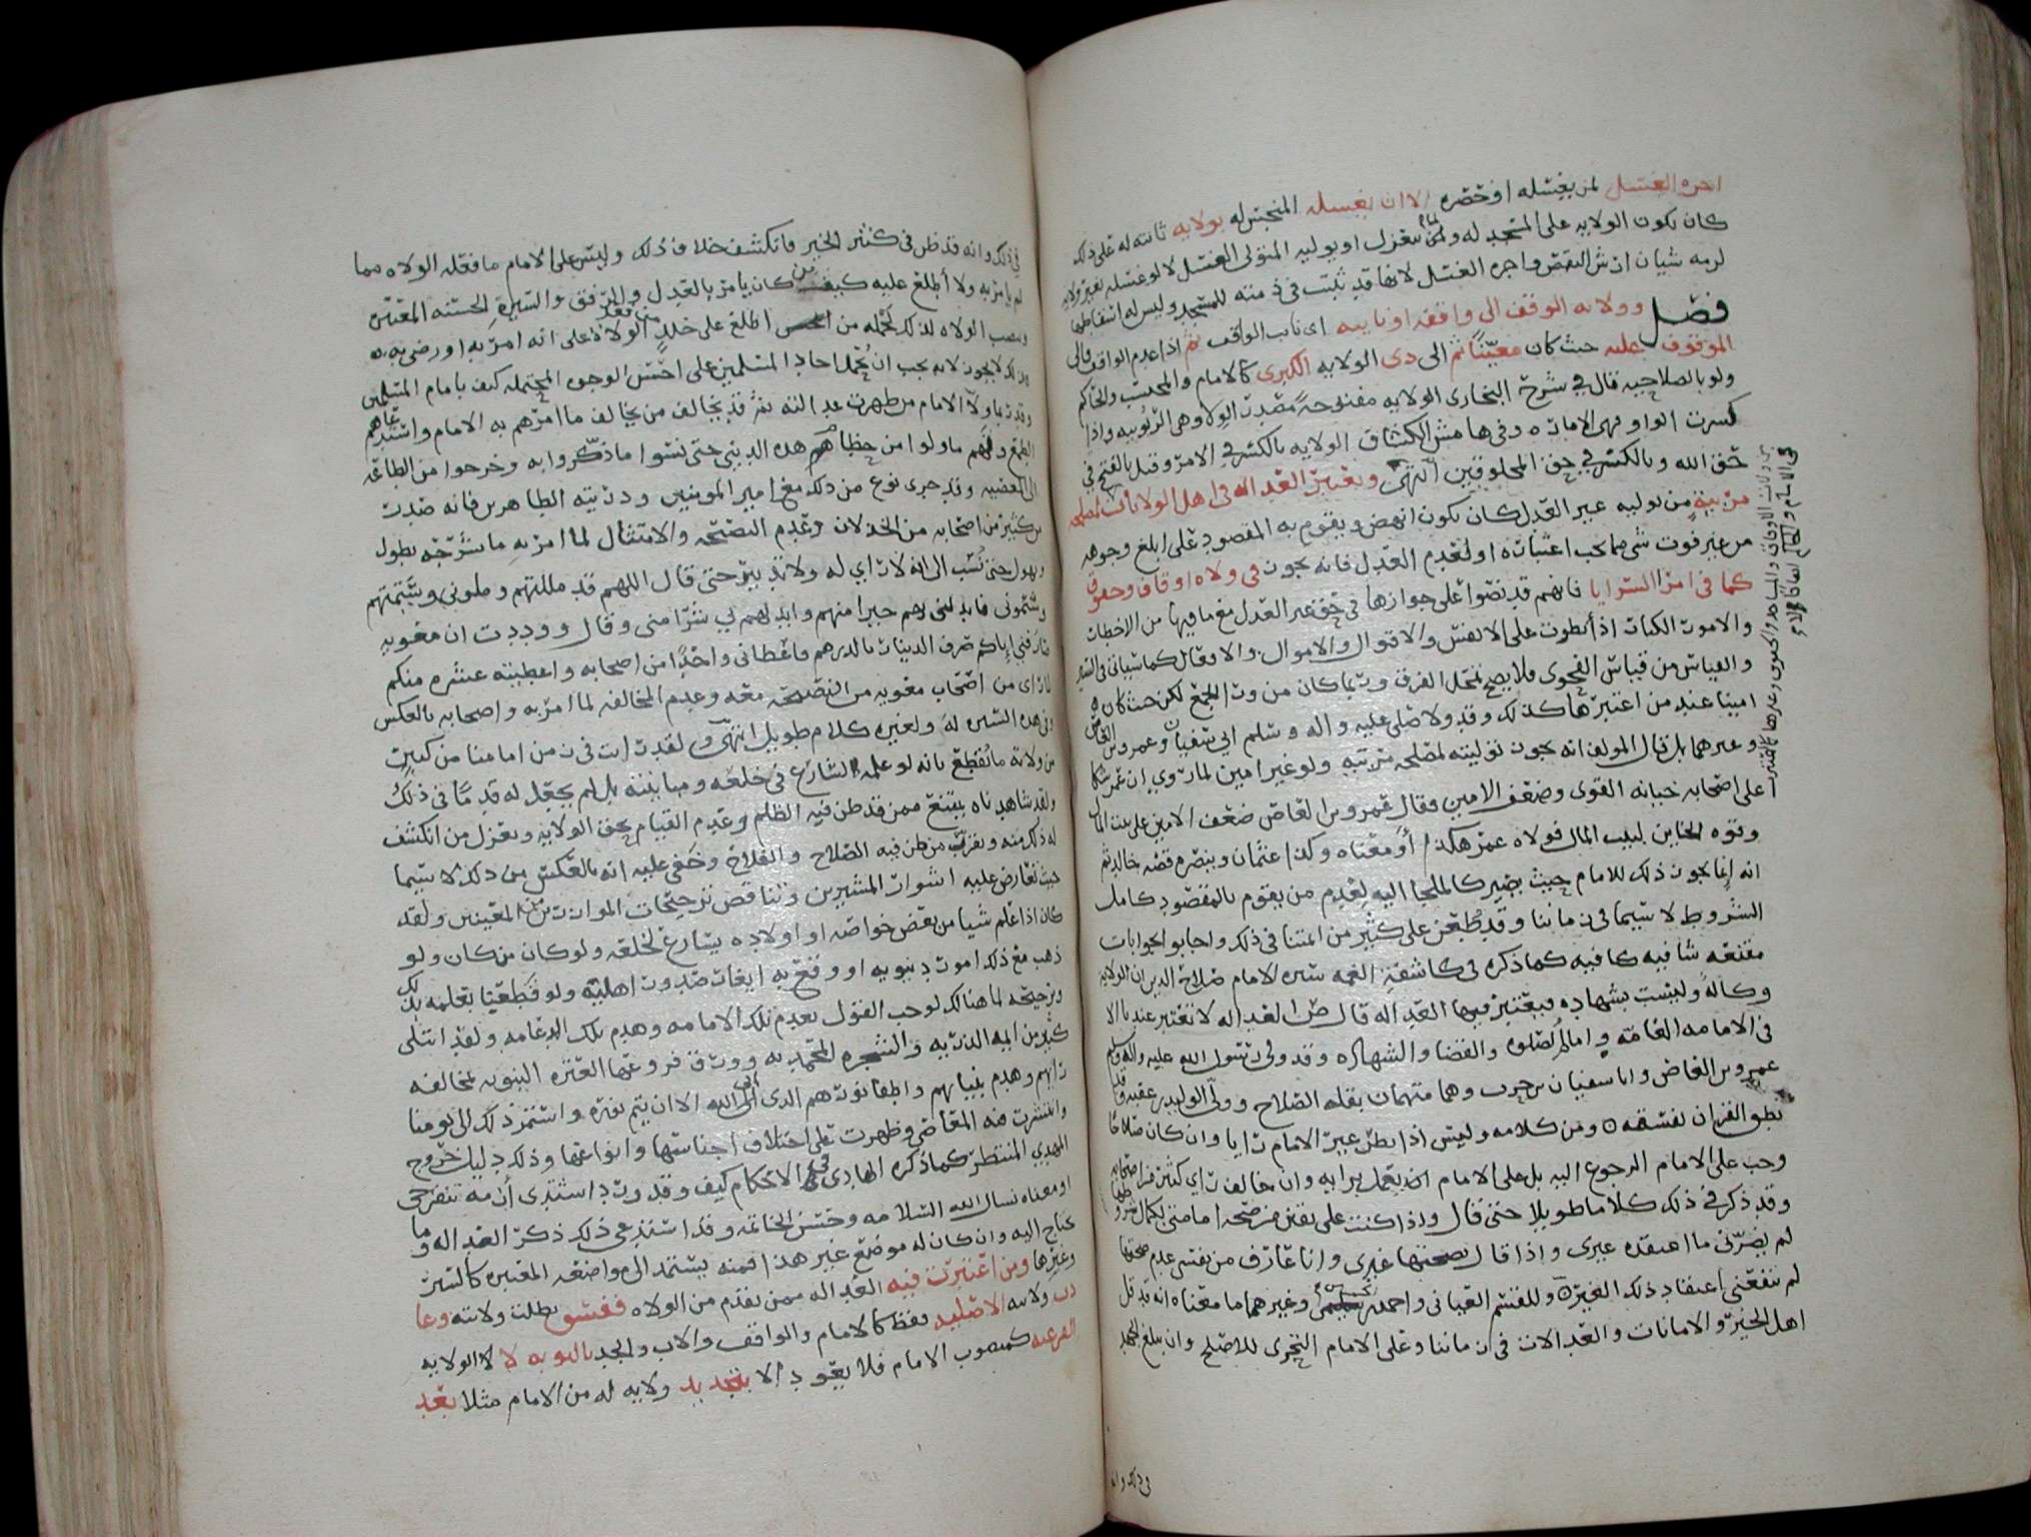 اجره الغسل لمن يغسله او حضره الا ان يغسله المنجس له بولايه ثابته له على ذلك
كان تكون الولايه على المسجد له ولما ينعزل او يوليه المتولى الغسل لا لو غسله لغير ولايه
لزمه شيان ارش النقص واجره الغسل لانها قد ثبتت فى ذمته للمسجد وليس له اسقاطها
فصل وولايه الوقف الى واقفه او نايبه اى نايب الواقف ثم اذا عدم الواقف فالى
الموقوف عليه حيث كان معينًا ثم الى ذى الولايه الكبرى كالامام والمحتسب والحاكم
ولو بالصلاحيه قال في شرح البخارى الولايه مفتوحةً مصدر الولا وهى الربوبيه واذا
كسرت الواو فهى الاماره وفى هامش الكشاف الولايه بالكسر في الامر وقيل بالفتح في
حق الله وبالكسر في حق المخلوقين انتهى وتعتبر العداله فى اهل الولايات لمصلحه
من توليه غير العدل كان يكون انهض ويقوم به المقصود على ابلغ وجوهه
من غير فوت شى مما يجب اعتباره او لعدم العدل فانه يجوز فى ولاه اوقاف وحقوق
كما فى امرا السرايا فانهم قد نصوا على جوازها فى حق غير العدل مع ما فيها من الاخطار
والامور الكبار اذ انطوت على الانفس والاقوال والاموال والاوفال كما سياتى فى السير
والقياس من قياس الفحوى فلا يصح تمحل الفرق وربما كان من ورا الجمع لكن حيث كان
امينا عند من اعتبرها كذلك وقد ولا صلى عليه واله وسلم ابى سفيان وعمرو بن العاص
وغيرهما بل قال المولف انه يجوز توليته لمصلحه مرتبه ولو غير امين لما روي ان عمر شكا
على اصحابه خيانه القوى وضعف الامين فقال عمرو بن العاص ضعف الامين على بيت المال
وقوه الخاين لبيت المال فولاه عمر هكذا او معناه وكذا عثمان وينصره قصه خالد ثم
انه انما يجوز ذلك للامام حيث يصير كالملجا اليه لعدم من يقوم بالمقصود كامل
الشروط لا سيما فى زماننا وقد طعن على كثير من ايمتنا فى ذلك واجابوا بجوابات
مقنعه شافيه كافيه كما ذكره فى كاشفة الغمه سيره الامام صلاح الدين ان الولايه
وكالةٌ وليست بشهاده فيعتبر فيها العداله قال ض العداله لا تعتبر عندنا الا
فى الامامه العامه وامام الصلوه والقضا والشهاده وقد ولى رسول الله عليه واله وسلم
عمرو بن العاص وابا سفيان بن حرب وهما متهمان بقله الصلاح وولى الوليد بن عقبه وقد
نطق القران بفسقه ومن كلامه وليس اذا نظر غير الامام رايا وان كان صلاحًا
وجب على الامام الرجوع اليه بل على الامام ان يعمل برايه وان خالف راي كثير من اصحابه
وقد ذكر فى ذلك كلاما طويلا حتى قال واذا كنت على يقين من صحه امامتى بكمال شروطها
لم يضرنى ما اعتقده غيرى واذا قال بصحتها غيرى وانا عارف من نفسى عدم صحتها
لم تنفعنى اعتقاد ذلك الغير وللقسم العيانى واحمد بن وغيرهما ما معناه انه قد قل
اهل الخير والامانات والعدالات فى زماننا وعلى الامام التحرى للاصلح وان يبلغ الجهد
فى ذلك وانه
فى ذلك وانه قد ظن فى كثير الخير فانكشف خلاف ذلك وليس على الامام ما فعله الولاه مما
لم يامر به ولا أُطلع عليه كيف من كان يامر بالعدل والرفق والسيرةِ الحسنه
ونصب الولاه لذلك من اطلع على خلل الولاة على انه امر به او رضى به
وذلك لا يجوز لانه يجب ان يحمل احاد المسلمين على احسن الوجوه المحتمله كيف بامام المسلمين
وقد ربما ولّا الامام من ظهرت عدالته ثم قد يخالف من يخالف ما امرهم به الامام واستدعاهم
الطمع وفيهم ما ولوا من حطام هذه الدنيى حتى نسوا ما ذكروا به وخرجوا من الطاعه
الى المعصيه وقد جرى نوع من ذلك مع امير المومنين وذريته الطاهرين فانه صدرت
من كثير من اصحابه من الخذلان وعدم النصيحه والامتثال لما امر به ما شرحه يطول
ويهول حتى نُسب الى انه لا راي له ولا تدبير حتى قال اللهم قد مللتهم وملونى وسئمتهم
وسئمونى فابدلنى بهم خيرا منهم وابدلهم بي شرًا منى وقال ووددت ان معويه
صارفنى اياكم صرف الدينار بالدرهم فاعطانى واحدًا من اصحابه واعطيته عشره منكم
لما راى من اصحاب معويه من النصيحه معه وعدم المخالفه لما امر به واصحابه بالعكس
وفى هذه السيره له ولغيره كلام طويل انتهى ولقد رايت فى زمن امامنا من كبيرٍ
من ولاته ما نُقطع بانه لو علمه لسارع فى خلعه ومباينته بل لم يجعل له قدمًا فى ذلك
ولقد شاهدناه يقنع ممن قد ظن فيه الظلم وعدم القيام بحق الولايه ويعزل من انكشف
له ذلك منه ويقرب من ظن فيه الصلاح والفلاح وخفى عليه انه بالعكس من ذلك لا سيما
حيث تعارض عليه اشوار المشيرين وتناقض ترجيحات الموازرين المعينين ولقد
كان اذا علم شيا من بعض خواصه او اولاده يسارع لخلعه ولو كان من كان ولو
ذهب مع ذلك امور دنيويه او وقع به ايغار صدور اهليه ولو قطعيًا بعلمه بذلك
وترجيحه لما هنالك لوجب القول بعدم تلك الامامه وهدم تلك الدعامه ولقد ابتلى
كثير من ايمه الذريه والشجره المحمديه وورق فروعها العتره النبويه بمخالفه
رايهم وهدم بنيانهم واطفا نورهم الذى ابى الله الا ان يتم نوره واستمر ذلك الى يومنا
وانتشرت منه المعاصى وظهرت على اختلاف اجناسها وانواعها وذلك دليل خروج
المهدي المنتظر كما ذكره الهادى فى الاحكام كيف وقد ورد اشتدى أزمه تنفرجى
او معناه نسال الله السلامه وحسن الخاتمه وقد استدعى ذلك ذكر العداله وما
يحتاج اليه وان كان له موضع غير هذا فمنه يستمد الى مواضعه المعتبره كالسير
وغيرها ومن اعتبرت فيه العداله ممن تقدم من الولاه ففسق بطلت ولايته وعا
دت ولايه الاصليه فقط كالامام والواقف والاب والجد بالتوبه لا الولايه
الفرعيه كمنصوب الامام فلا يعود الا بتجديد ولايه له من الامام مثلا بعد